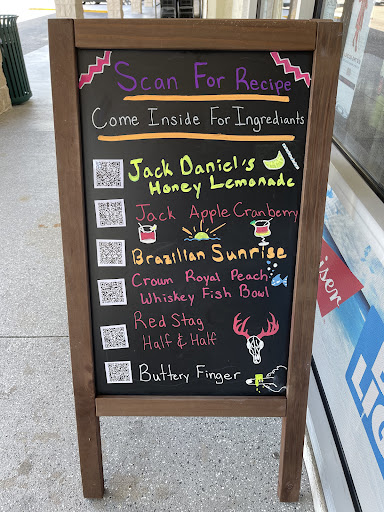 Scan For Recipe
Come Inside For Ingrediants
Jack Daniel's
Honey Lemonade
Jack Apple Cranberry
Brazilian Sunrise
Crown Royal Peach
Whiskey Fish Bowl
Red Stag
Half & Half
Buttery Finger
iser
LIG